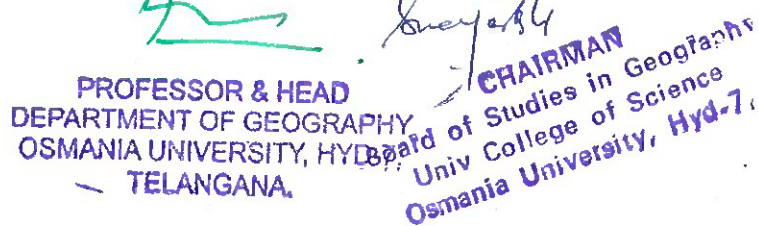 PROFESSOR & HEAD
DEPARTMENT OF GEOGRAPHY
OSMANIA UNIVERSITY, HYD
TELANGANA.
CHAIRMAN
Board of Studies in Geography
Univ College of Science
Osmania University, Hyd-7,